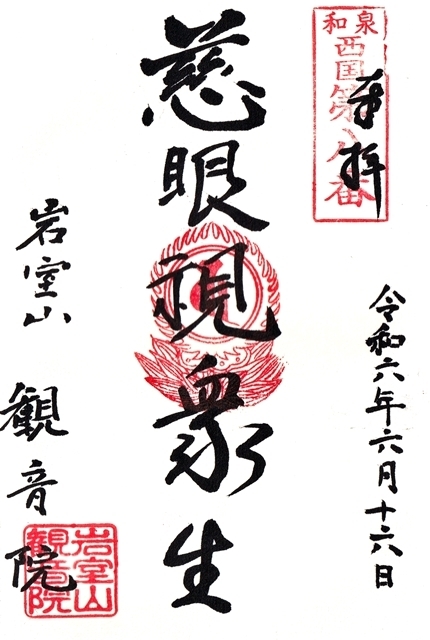 和泉
西国第八番
奉拝
令和六年六月十六日
慈眼視衆生
岩室山
観音院
岩室山
観音院